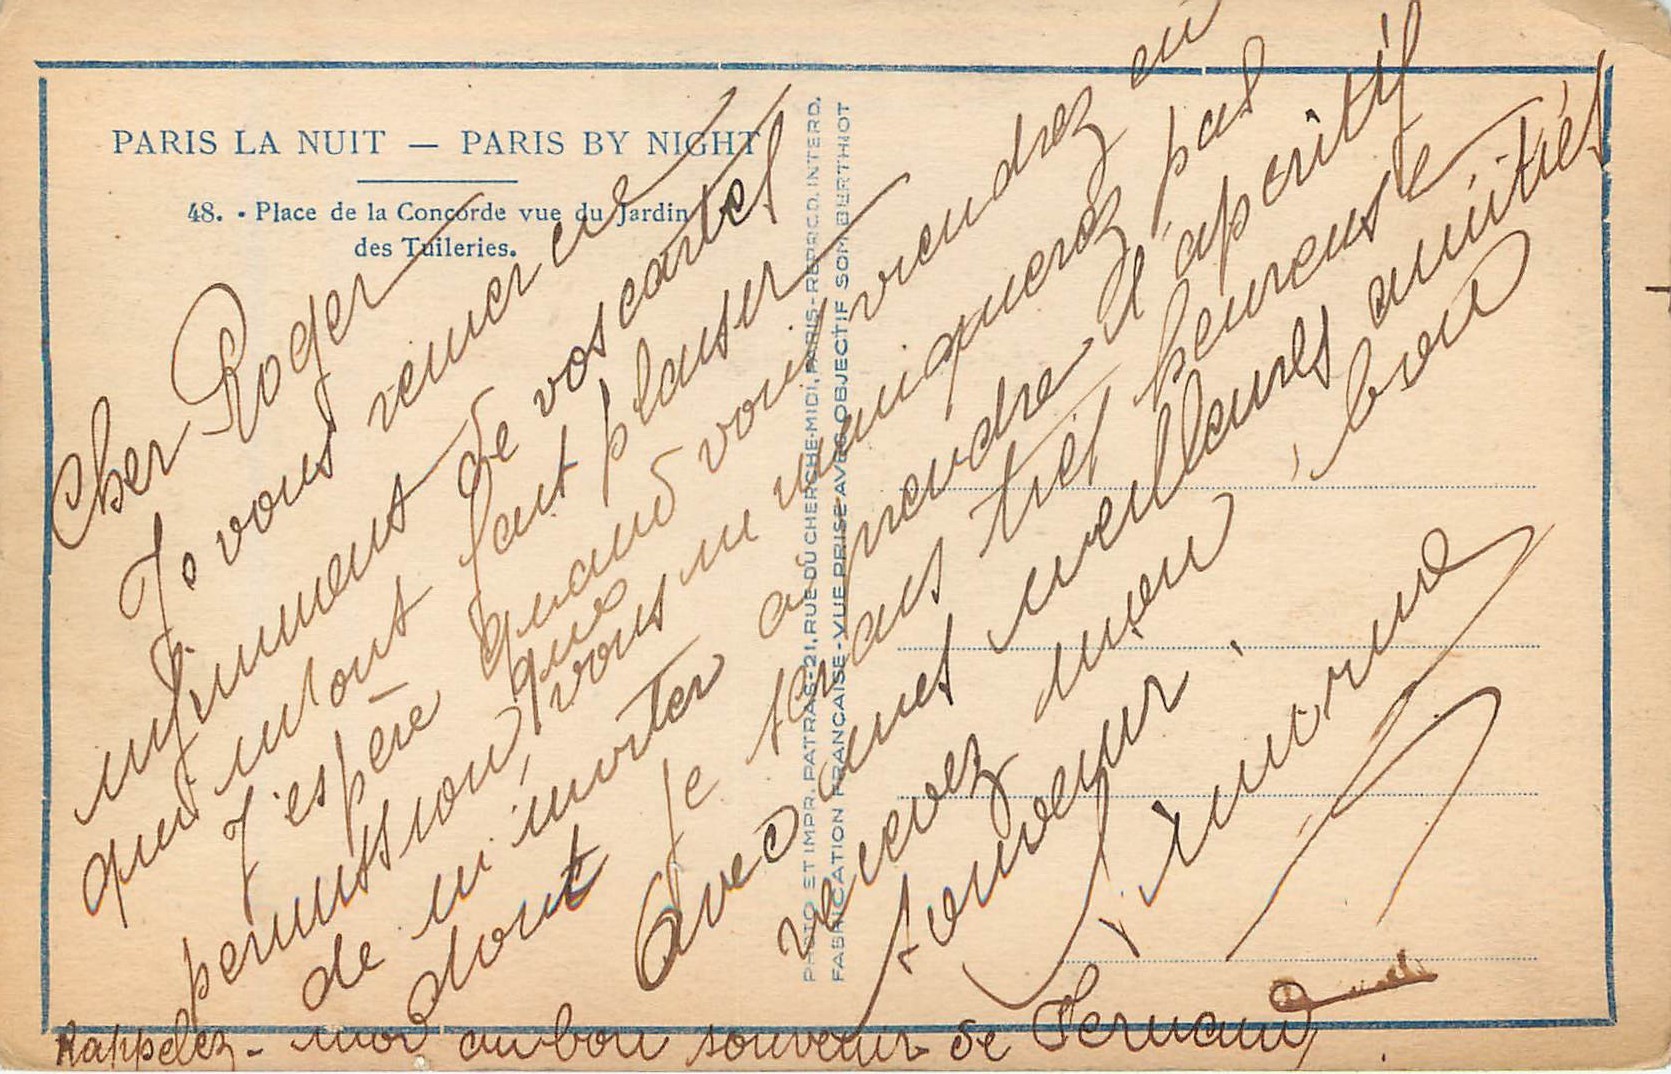 PARIS LA NUIT — PARIS BY NIGHT
48. - Place de la Concorde vue du Jardin
des Tuileries.
PHOTO ET IMPR. PATRAS-21, RUE DU CHERCHE-MIDI, PARIS-REPROD. INTERD.
FABRICATION FRANCAISE-VUE PRISE AVEC OBJECTIF SOM-BERTHIOT
Cher Roger
Je vous remercie
infiniment de vos cartes
qui m'ont fait plaisir
J'espère quand vous viendrez en
permission, que vous ne manquerez pas
de m'inviter à prendre l'apéritif
dont je serais très heureuse
Avec mes meilleures amitiés
recevez mon bon
souvenir.
Simone
Rappelez-moi au bon souvenir de Fernand.